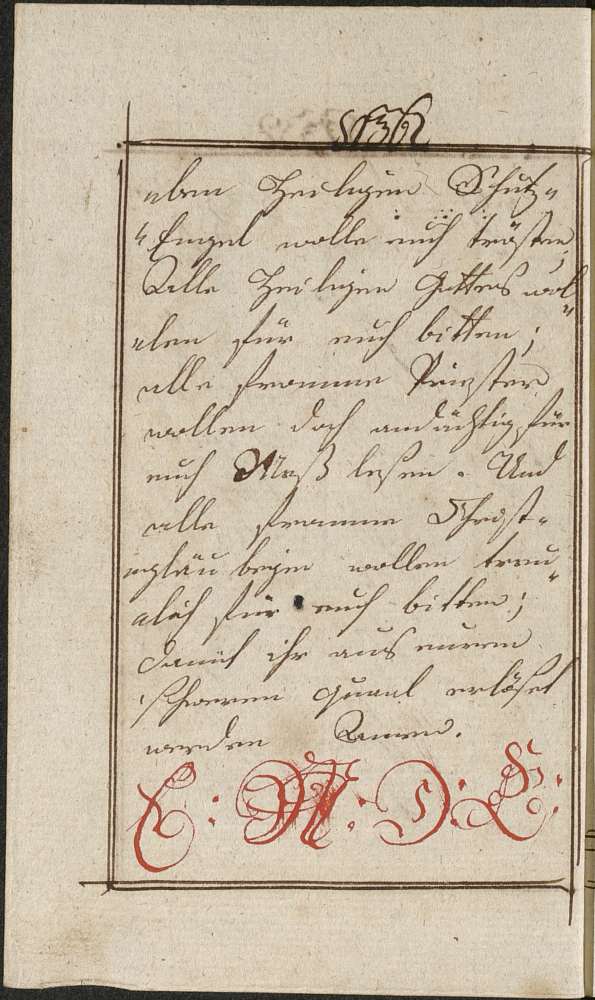 136
eben Heiligen Schutz"
"Engel wolle euch trösten,
Alle Heiligen Gottes wol"
"len für euch bitten;
alle fromme Priester
wollen doch andächtig für
euch Meß lesen. Und
alle fromme Christ-
gläubigen wollen treu"
"lich für euch bitten;
damit ihr aus euren
schweren Quaal erlöset
werden Amen.